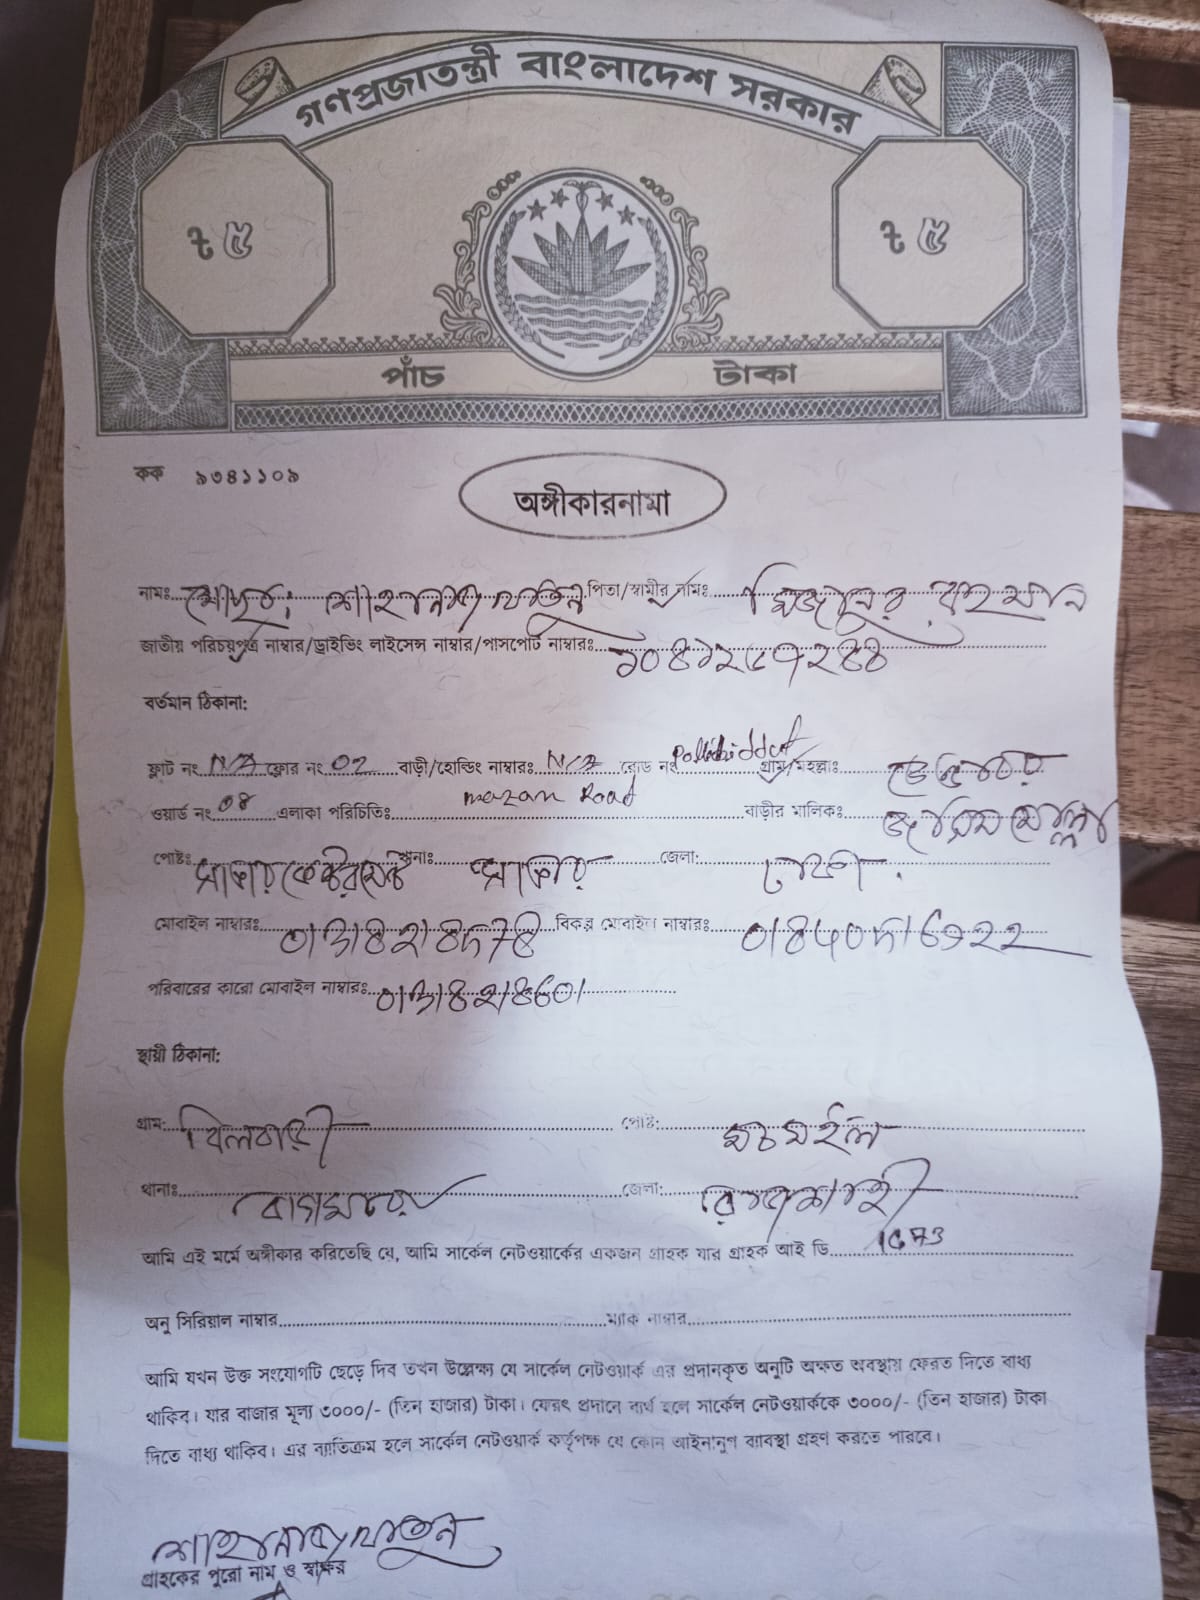 গণপ্রজাতন্ত্রী বাংলাদেশ সরকার
৳ ৫ ৳ ৫
পাঁচ টাকা
কক ৯৩৪১১০৯
অঙ্গীকারনামা
নামঃ মোছাঃ শাহনাজ খাতুন পিতা/স্বামীর নামঃ মিজানুর রহমান
জাতীয় পরিচয়পত্র নাম্বার/ড্রাইভিং লাইসেন্স নাম্বার/পাসপোর্ট নাম্বারঃ
বর্তমান ঠিকানা:
ফ্লাট নং N/A ফ্লোর নং 02 বাড়ী/হোল্ডিং নাম্বারঃ N/A রোড নং Pollibiddut গ্রাম/মহল্লাঃ
ওয়ার্ড নং 08 এলাকা পরিচিতিঃ mazar Road বাড়ীর মালিকঃ মোল্লা
পোষ্টঃ সাভার কেন্টনমেন্ট থানাঃ সাভার জেলা: ঢাকা
মোবাইল নাম্বারঃ বিকল্প মোবাইল নাম্বারঃ
পরিবারের কারো মোবাইল নাম্বারঃ
স্থায়ী ঠিকানা:
গ্রাম: বিলবাড়ী পোষ্ট: মচমইল
থানাঃ বাগমারা জেলা: রাজশাহী
আমি এই মর্মে অঙ্গীকার করিতেছি যে, আমি সার্কেল নেটওয়ার্কের একজন গ্রাহক যার গ্রাহক আই ডি
অনু সিরিয়াল নাম্বার ম্যাক নাম্বার
আমি যখন উক্ত সংযোগটি ছেড়ে দিব তখন উল্লেক্ষ্য যে সার্কেল নেটওয়ার্ক এর প্রদানকৃত অনুটি অক্ষত অবস্থায় ফেরত দিতে বাধ্য
থাকিব। যার বাজার মূল্য ৩০০০/- (তিন হাজার) টাকা। ফেরৎ প্রদানে ব্যর্থ হলে সার্কেল নেটওয়ার্ককে ৩০০০/- (তিন হাজার) টাকা
দিতে বাধ্য থাকিব। এর ব্যতিক্রম হলে সার্কেল নেটওয়ার্ক কর্তৃপক্ষ যে কোন আইনানুগ ব্যাবস্থা গ্রহণ করতে পারবে।
শাহনাজ খাতুন
গ্রাহকের পুরো নাম ও স্বাক্ষর